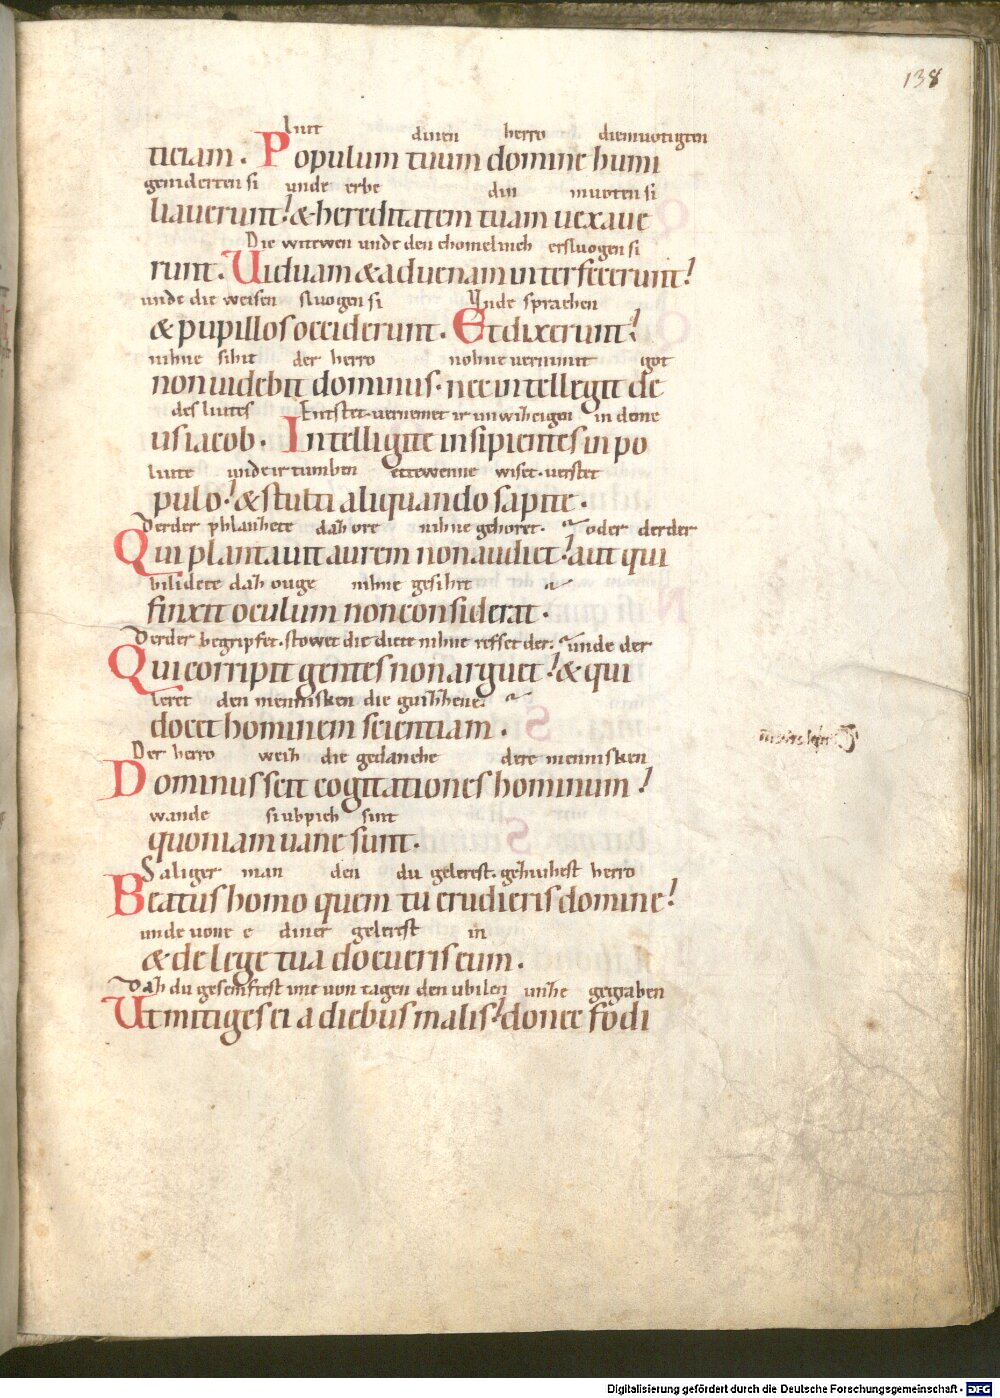 138
liut diuen herro diemuotigten
ticiam. Populum tuum domine humi
geniderten si unde erbe din muoten si
liauerunt! & hereditatem tuam uexaue
Die witewen unde den chomelinch ersluogen si
runt. Uiduam & aduenam interfecerunt!
unde die weisen sluogen si Vnde sprachen
& pupillos occiderunt. Et dixerunt!
nihne sihit der herro nohne uernimit got
non uidebit dominus. nec intellegit de
des liutes Entstet. uernemet ir unwiheigen in deme
us iacob. Intelligite insipientes in po
liute unde ir tumben ettewenne wiset. uerstet
pulo! & stulti aliquando sapite.
Derder phlanhete dah ore nihne gehoret. oder derder
Qui plantauit aurem non audiet! aut qui
bilidete dah ouge nihne gesihet
finxit oculum non considerat.
Derder begripfet. stowet die diete nihne refset der. unde der
Qui corripit gentes non arguet! & qui
leret den mennisken die guihhene.
docet hominem scientiam.
Der herro weih die gedanche dere mennisken
Dominus scit cogitationes hominum!
wande si ubpich sint
quoniam uane sunt.
Saliger man den du gelerest. gehuhest herro
Beatus homo quem tu erudieris domine!
unde uone e diner gelerest in
& de lege tua docueris eum.
Dah du gesemftest ime uon tagen den ubilen unhe gegraben
Ut mitiges ei a diebus malis! donec fodi
Digitalisierung gefördert durch die Deutsche Forschungsgemeinschaft - DFG